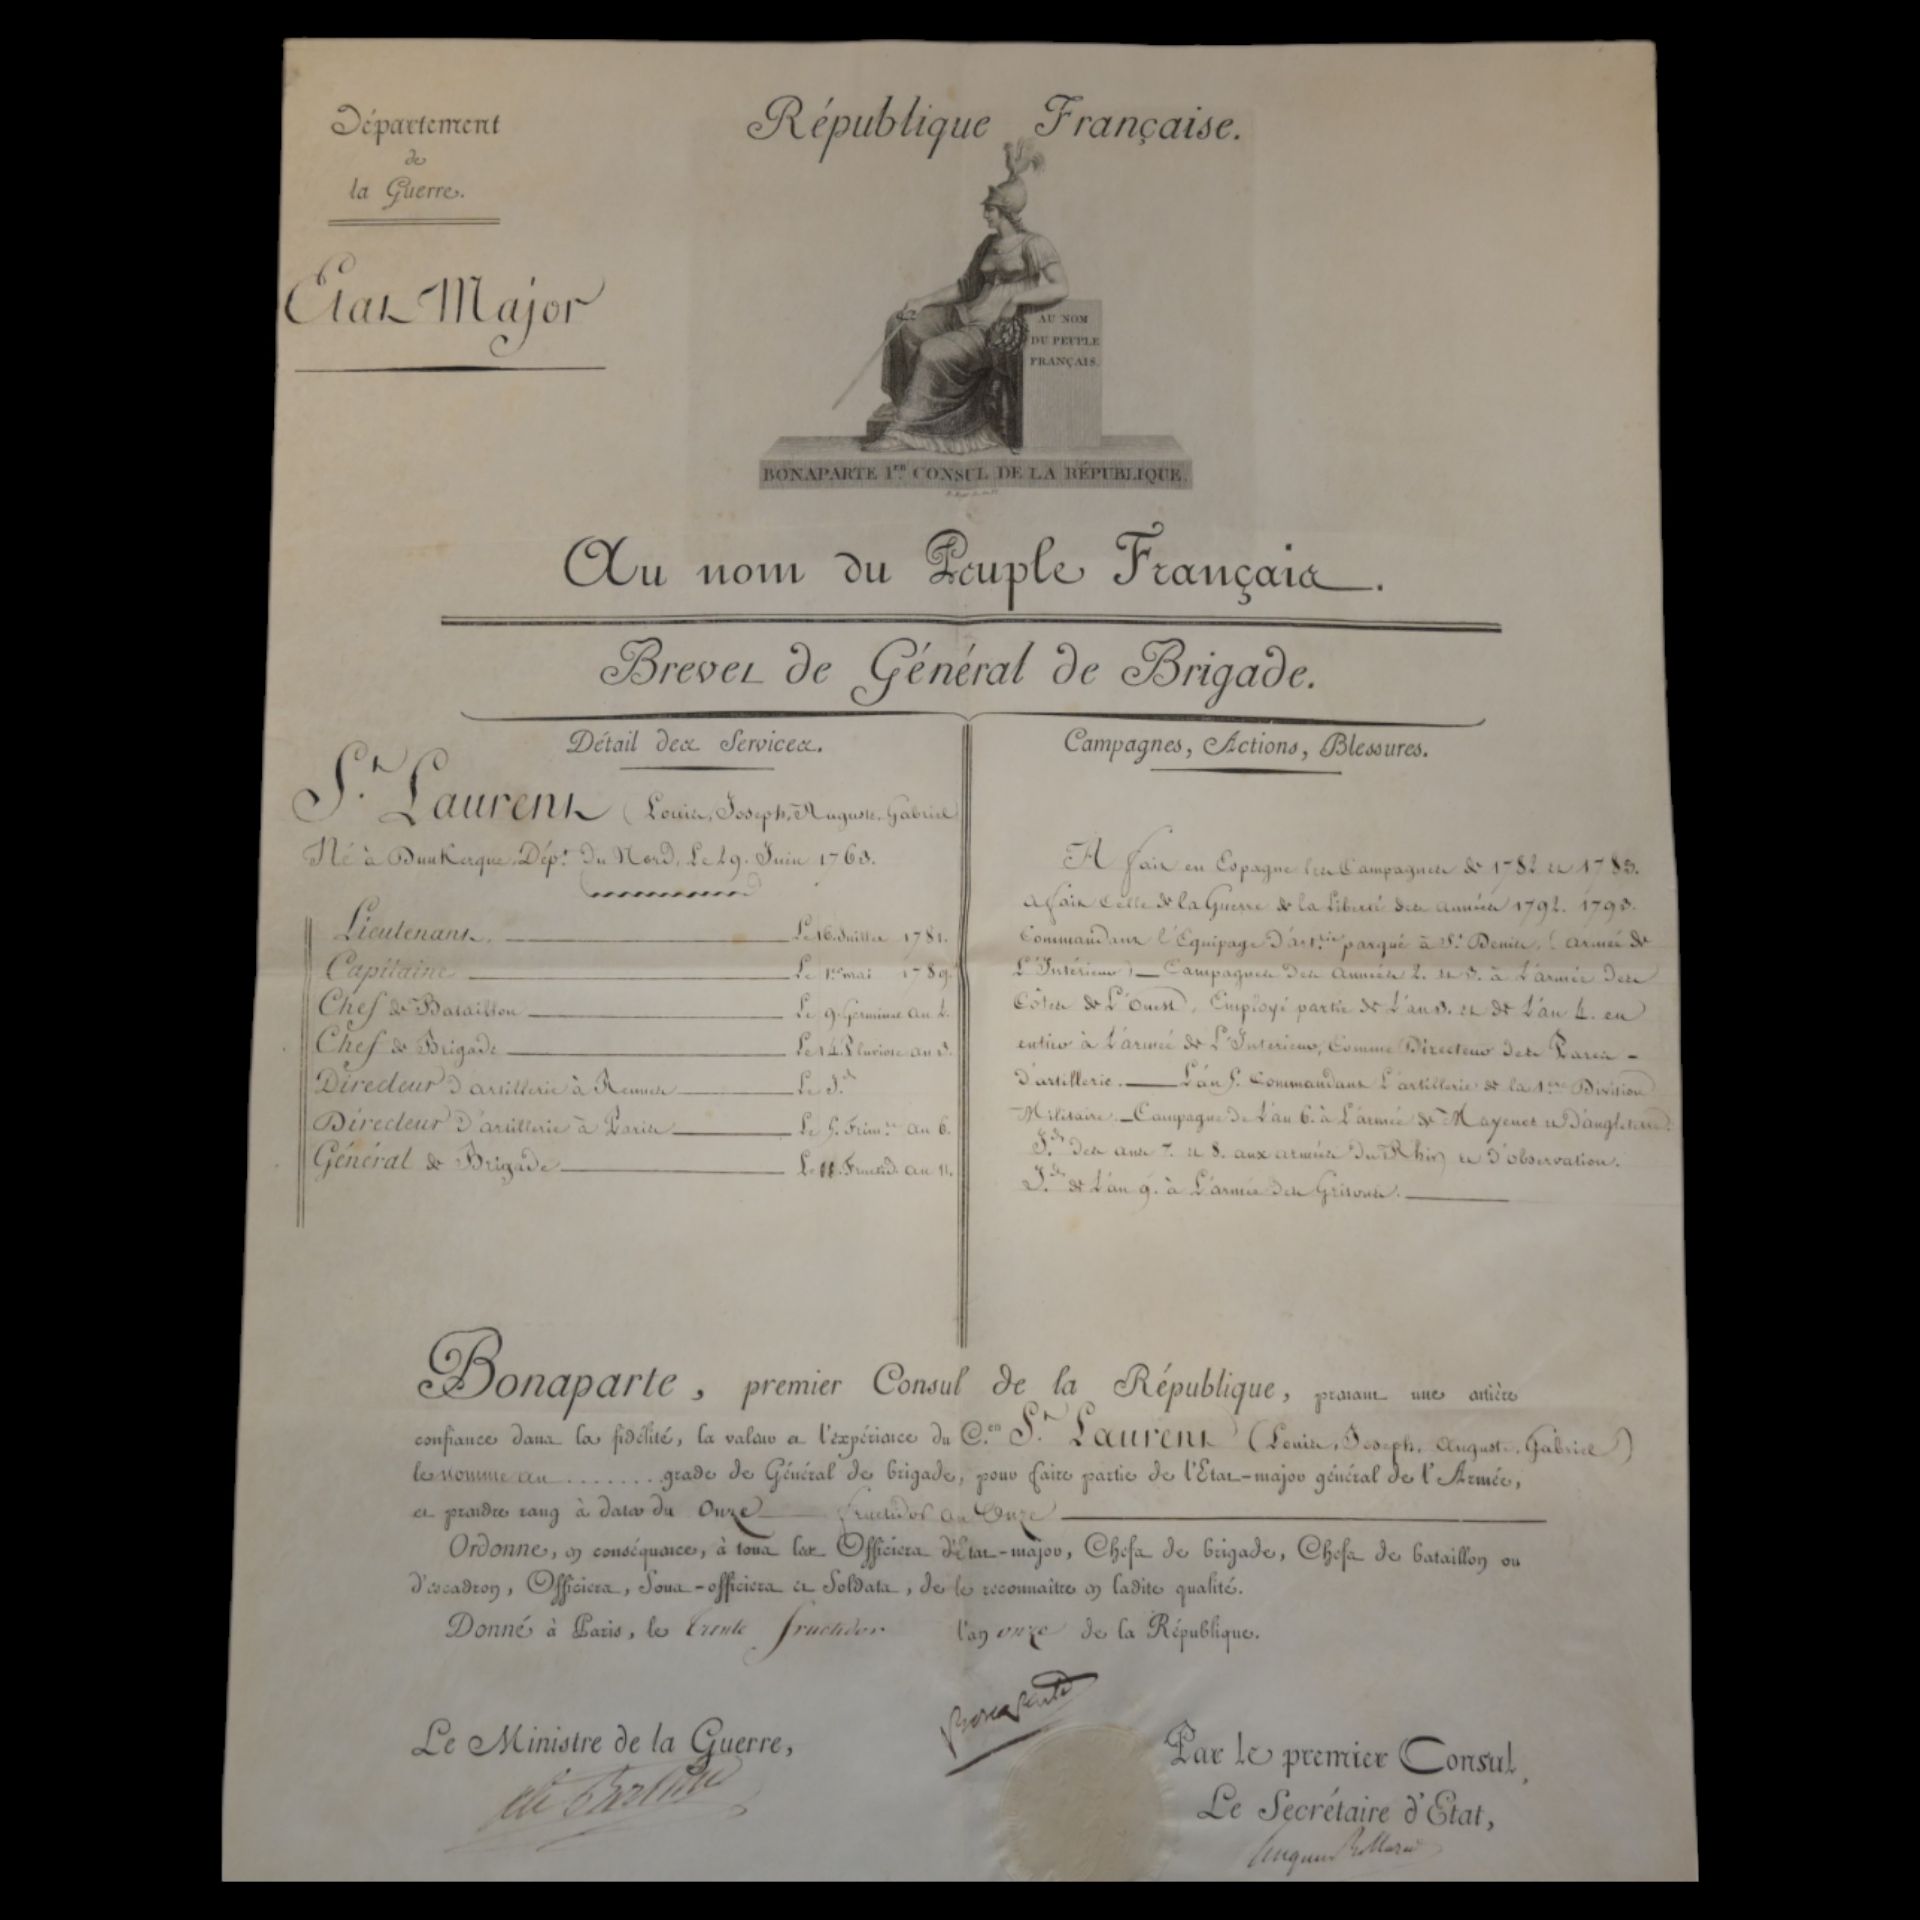 Département
de
la Guerre.
Etat Major
République Française.
AU NOM
DU PEUPLE
FRANÇAIS.
BONAPARTE 1.ER CONSUL DE LA RÉPUBLIQUE.
Au nom du Peuple Français.
Brevet de Général de Brigade.
Détail des Services.
S.t Laurent (Louis, Joseph, Auguste, Gabriel
Né à Dunkerque, Dép.t du Nord, Le 29. Juin 1763.
Lieutenant. Le 16. Juillet 1781.
Capitaine Le 1.er mai 1789.
Chef de Bataillon Le 9. Germinal an 2.
Chef de Brigade Le 14. Pluviose an 3.
Directeur d'artillerie à Rennes Le J.d
Directeur d'artillerie à Paris Le 5. Frim.re an 6.
Général de Brigade Le 11. Fructid. an 11.
Campagnes, Actions, Blessures.
A fait en Espagne les Campagnes de 1782 et 1783.
a fait celle de la Guerre de la Liberté des années 1792. 1793.
Commandant l'Equipage d'art.rie parqué à S.t Denis, (armée de
L'Intérieur) — Campagnes des années 2. et 3. à L'armée des
Côtes de L'Ouest, Employé partie de L'an 3. et de L'an 4. en
entier à L'armée de L'Intérieur, Comme Directeur des Parcs -
d'artillerie. — L'an 5. Commandant L'artillerie de la 1.ere Division
Militaire. — Campagne de L'an 6. à L'armée de Mayence et d'angleterre.
J.d des ans 7. et 8. aux armées du Rhin et d'observation.
J.d de L'an 9. à L'armée des Grisons.
Bonaparte, premier Consul de la République, prenant une entière
confiance dans la fidélité, la valeur et l'expérience du C.en S.t Laurent (Louis, Joseph, Auguste, Gabriel)
le nomme au ........ grade de Général de brigade, pour faire partie de l'Etat-major général de l'Armée,
et prendre rang à dater du Onze fructidor an Onze
Ordonne, en conséquence, à tous les Officiers d'Etat-major, Chefs de brigade, Chefs de bataillon ou
d'escadron, Officiers, Sous-officiers et Soldats, de le reconnaître en ladite qualité.
Donné à Paris, le trente fructidor l'an onze de la République.
Bonaparte
Le Ministre de la Guerre,
Par le premier Consul,
Le Secrétaire d'Etat,
Hugues B. Maret